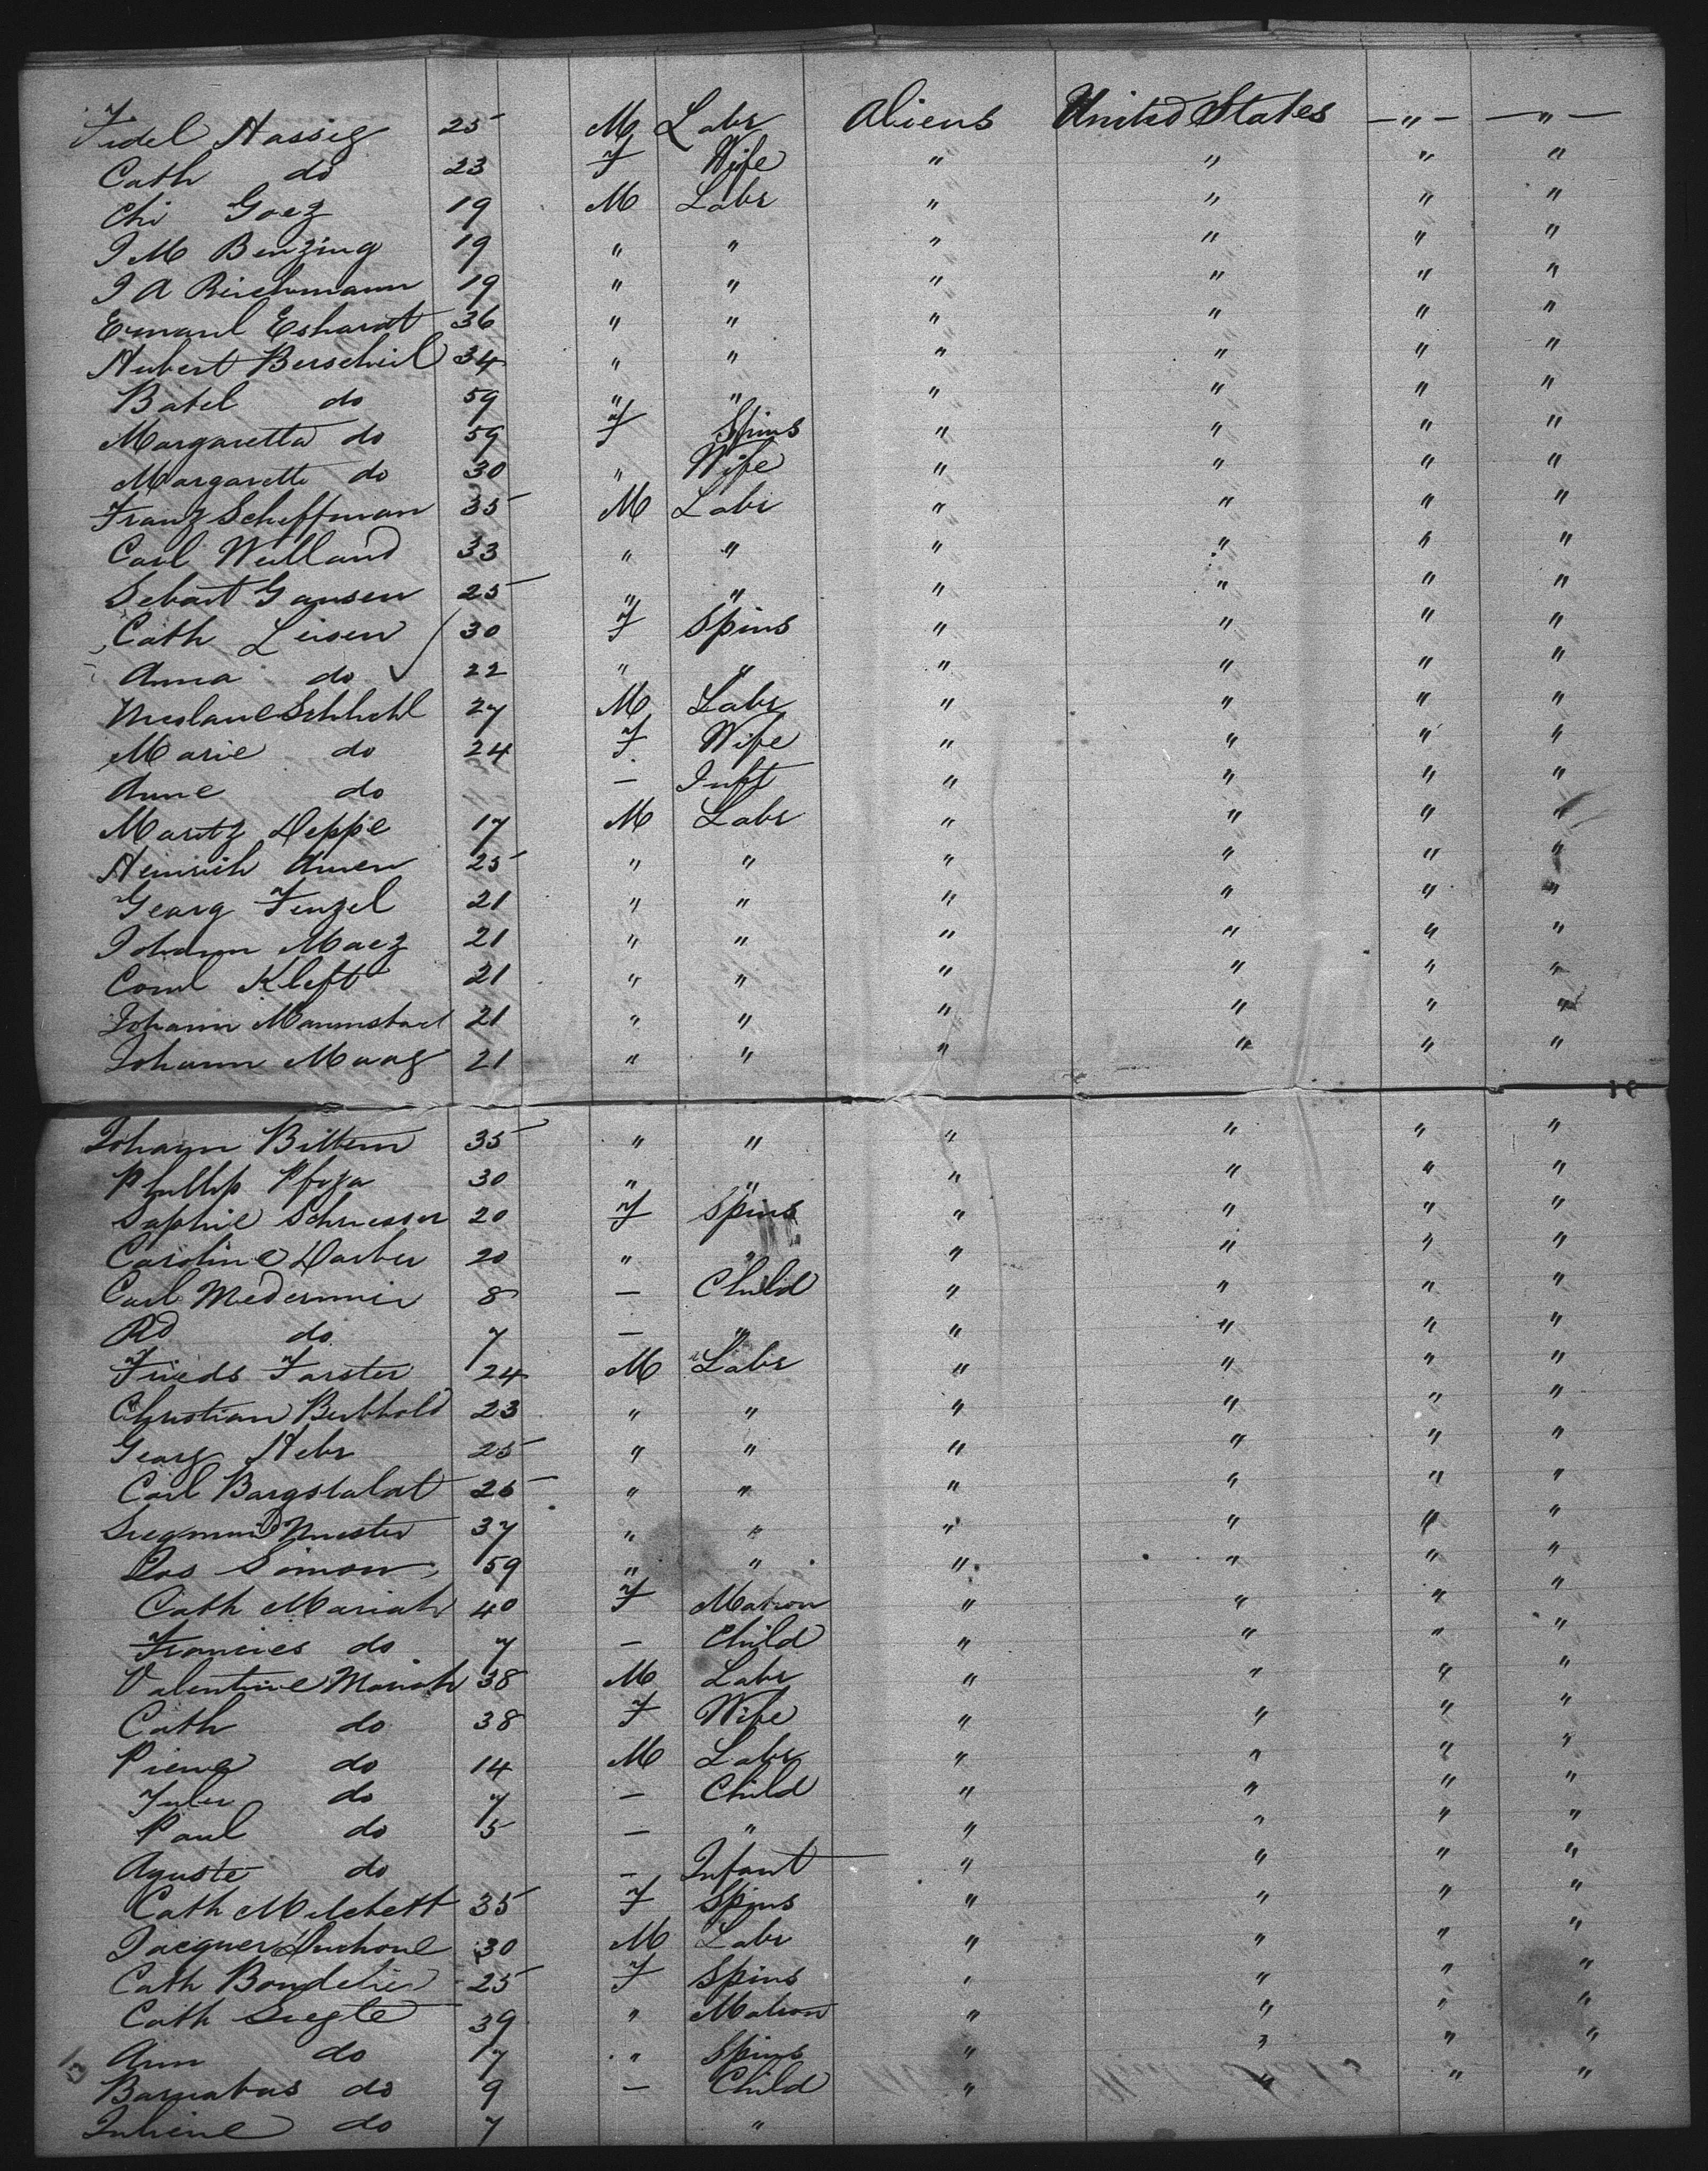 Fidel Hassig 25 M Labr Aliens United States — " — — " —
Cath do 23 F Wife " " " "
Chi Goez 19 M Labr " " " "
J M Benzing 19 " " " " " "
J A Reichmann 19 " " " " " "
Emanl Eshardt 36 " " " " " "
Hubert Berscheil 34 " " " " " "
Batel do 59 " " " " " "
Margaretta do 59 F Spins " " " "
Margarette do 30 " Wife " " " "
Franz Scheffman 35 M Labr " " " "
Carl Welland 33 " " " " " "
Sebart Gansen 25 " " " " " "
Cath Leisen 30 F Spins " " " "
Anna do 22 " " " " " "
Schlichl 27 M Labr " " " "
Marie do 24 F Wife " " " "
Anne do — Inft " " " "
Maritz Deppe 17 M Labr " " " "
Heinrich Amen 25 " " " " " "
Georg Fenzel 21 " " " " " "
Johann Maez 21 " " " " " "
Conl Kleft 21 " " " " " "
Johann Mannstad 21 " " " " " "
Johann Maag 21 " " " " " "
Johann Bittern 35 " " " " " "
Phillip 30 " " " " " "
Saphie Schriesser 20 F Spins " " " "
Caroline Darber 20 " " " " " "
Carl Medermeir 8 — Child " " " "
Rd do 7 — " " " " "
Frieds Farster 24 M Labr " " " "
Christian Berthold 23 " " " " " "
Georg Hebr 25 " " " " " "
Carl Bargstaldt 25 " " " " " "
Siegmund Muester 37 " " " " " "
Jos Simon 59 " " " " " "
Cath Mariah 40 F Matron " " " "
Francies do 7 — Child " " " "
Valentine Mariah 38 M Labr " " " "
Cath do 38 F Wife " " " "
Pierre do 14 M Labr " " " "
Juler do 7 — Child " " " "
Paul do 5 — " " " " "
Aguste do — Infant " " " "
Cath Milchett 35 F Spins " " " "
Jacquer Duchone 30 M Labr " " " "
Cath Bondelier 25 F Spins " " " "
Cath Siegle 39 " Matron " " " "
Ann do 17 " Spins " " " "
Barnabas do 9 — Child " " " "
Juliene do 7 "